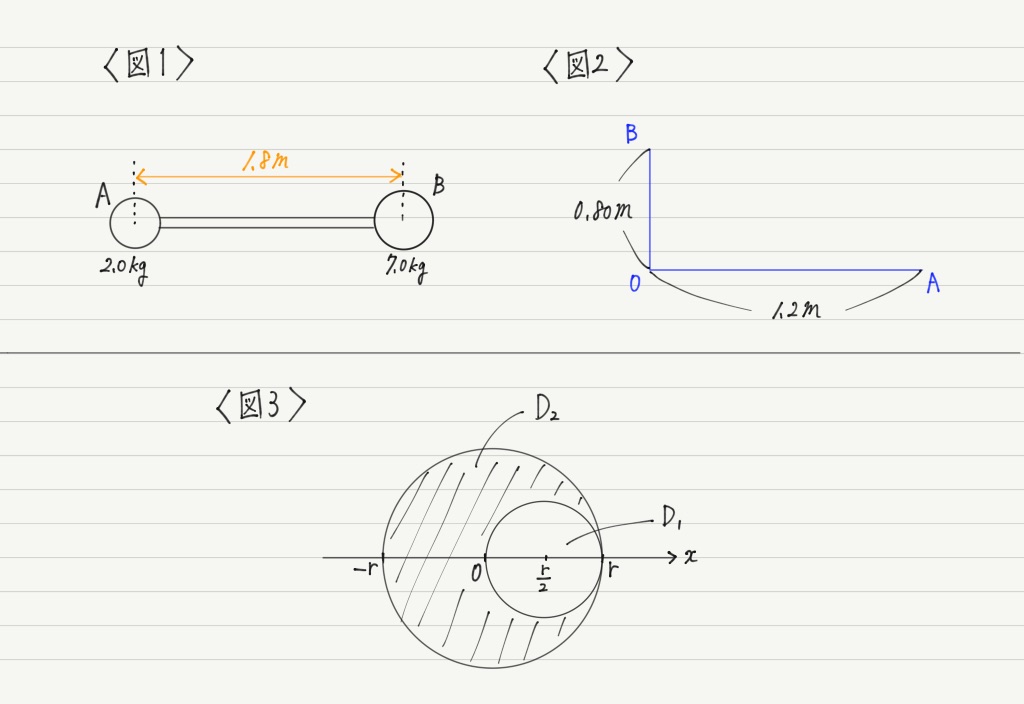 〈図1〉
1.8m
A
B
2.0kg
7.0kg
〈図2〉
B
0.80m
O
A
1.2m
〈図3〉
D₂
D₁
-r
O
r/2
r
x